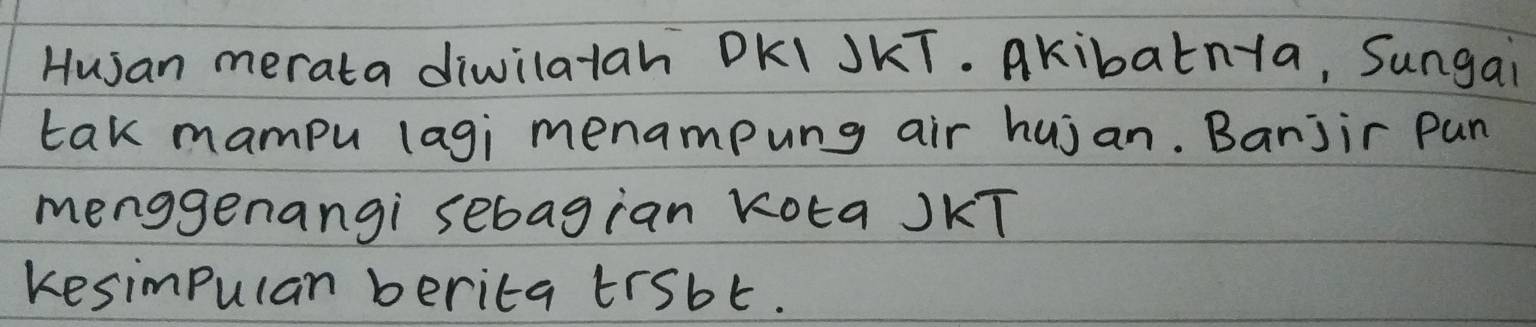 Hujan merata diwilayah DKI JKT. Akibatnya, Sungai
tak mampu lagi menampung air hujan. Banjir pun
menggenangi sebagian kota JKT
kesimpulan berita trsbt.